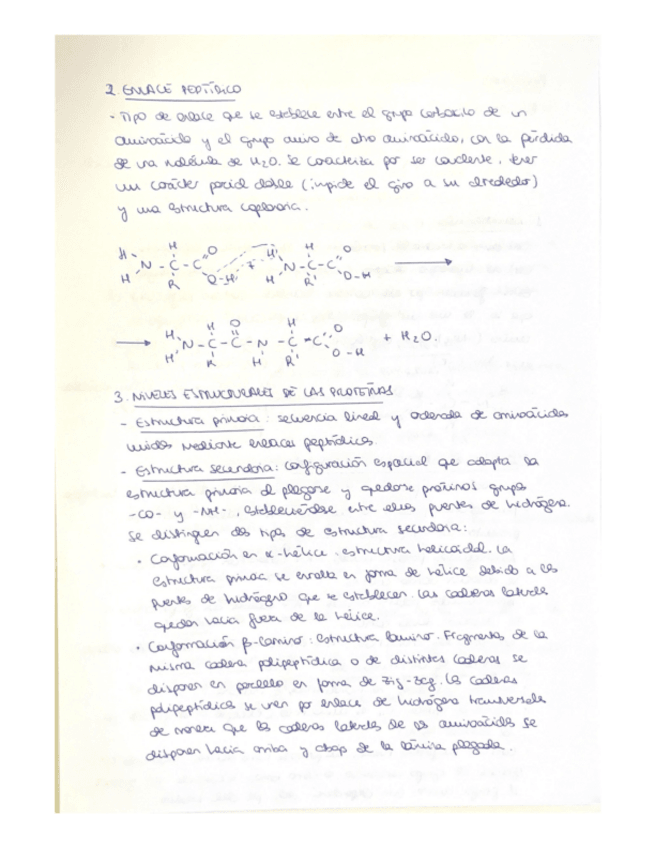 2. ENLACE PEPTÍDICO
· Tipo de enlace que se establece entre el grupo carboxilo de un
aminoácido y el grupo amino de otro aminoácido, con la pérdida
de una molécula de H₂O. Se caracteriza por ser covalente, tener
un carácter parcial doble (impide el giro a su alrededor)
y una estructura coplanaria.
H H O H H O
N - C - C + N - C - C
H R O-H H R' O-H
H H O H O
N - C - C - N - C - C + H₂O.
H R H R' O-H
3. NIVELES ESTRUCTURALES DE LAS PROTEÍNAS
- Estructura primaria: secuencia lineal y ordenada de aminoácidos
unidos mediante enlaces peptídicos
- Estructura secundaria: configuración espacial que adapta la
estructura primaria al plegarse y quedarse próximos grupos
-CO- y -NH-, estableciéndose entre ellos puentes de hidrógeno.
Se distinguen dos tipos de estructura secundaria:
· Conformación en α-hélice: estructura helicoidal. La
estructura primaria se enrolla en forma de hélice debido a los
puentes de hidrógeno que se establecen. Las cadenas laterales
quedan hacia fuera de la hélice.
· Conformación β-laminar: estructura laminar. Fragmentos de la
misma cadena polipeptídica o de distintas cadenas se
disponen en paralelo en forma de zig-zag. Las cadenas
polipeptídicas se unen por enlaces de hidrógeno transversales
de manera que las cadenas laterales de los aminoácidos se
disponen hacia arriba y abajo de la lámina plegada.